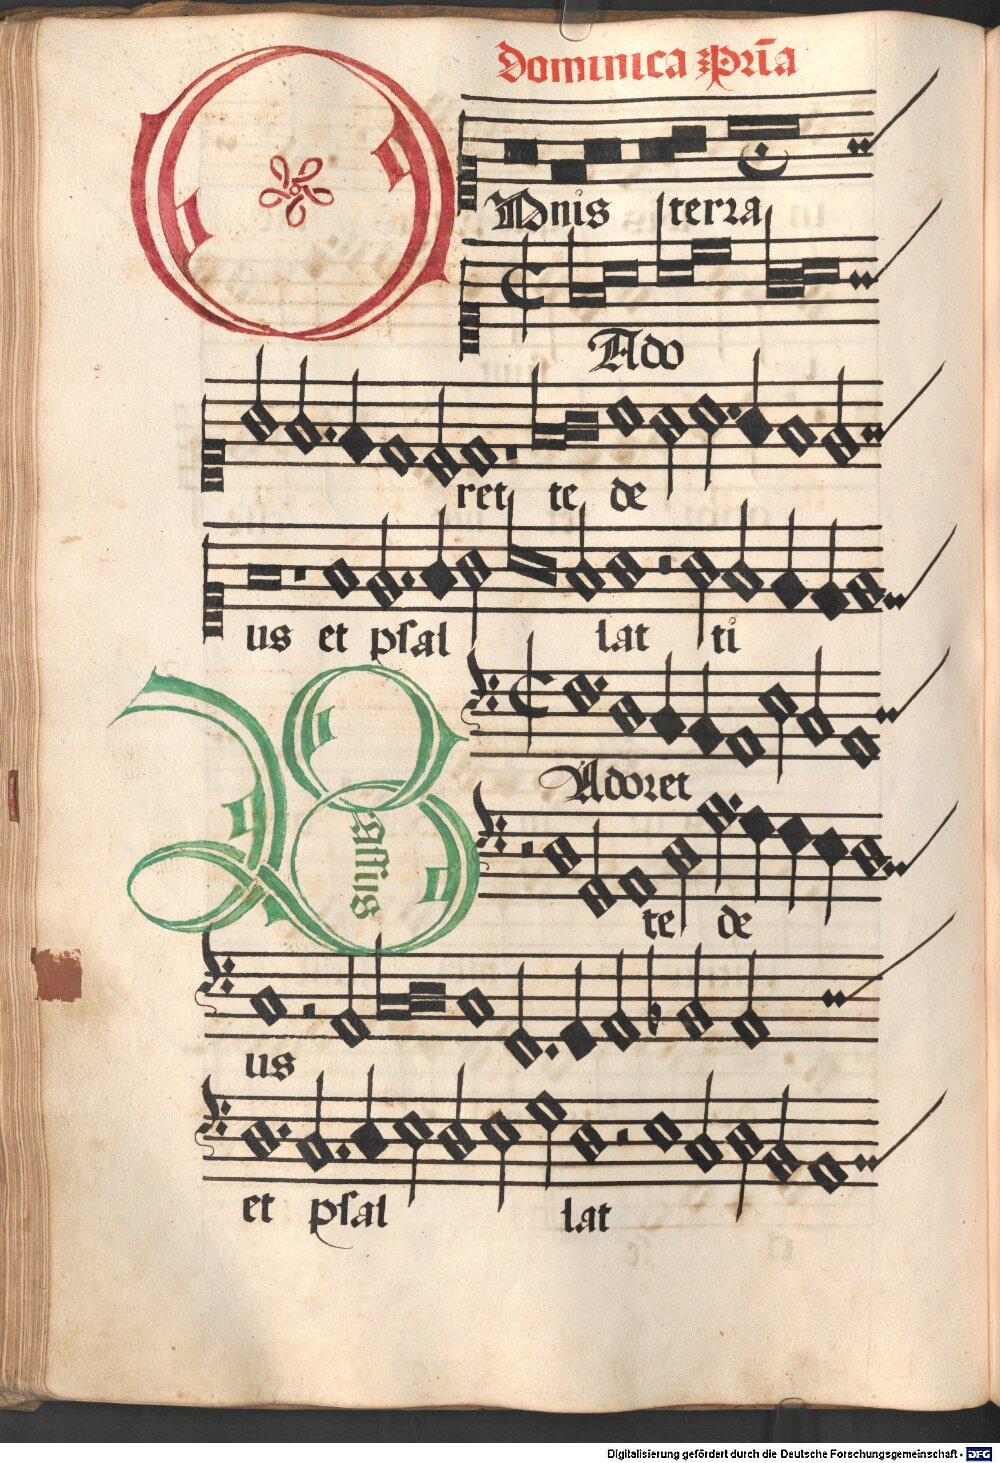 Dominica Prīa
Omnis terra
Ado
ret te de
us et psal lat ti
Bassus
Adoret
te de
us
et psal lat
Digitalisierung gefördert durch die Deutsche Forschungsgemeinschaft - DFG